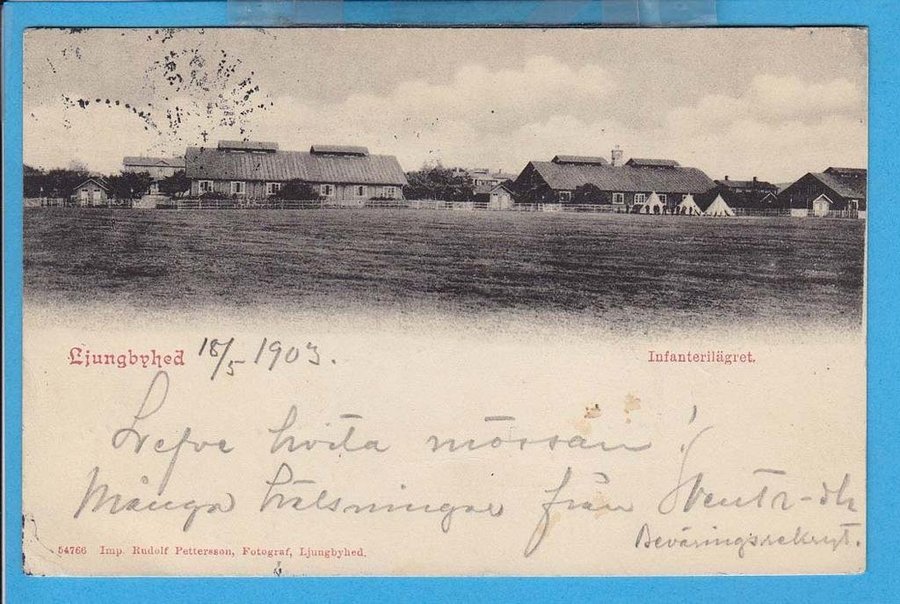 Ljungbyhed 18/5 1903.
Infanterilägret.
Lefve hvita mössan!
Många hälsningar från
Beväringsrekryt.
54766 Imp. Rudolf Pettersson, Fotograf, Ljungbyhed.